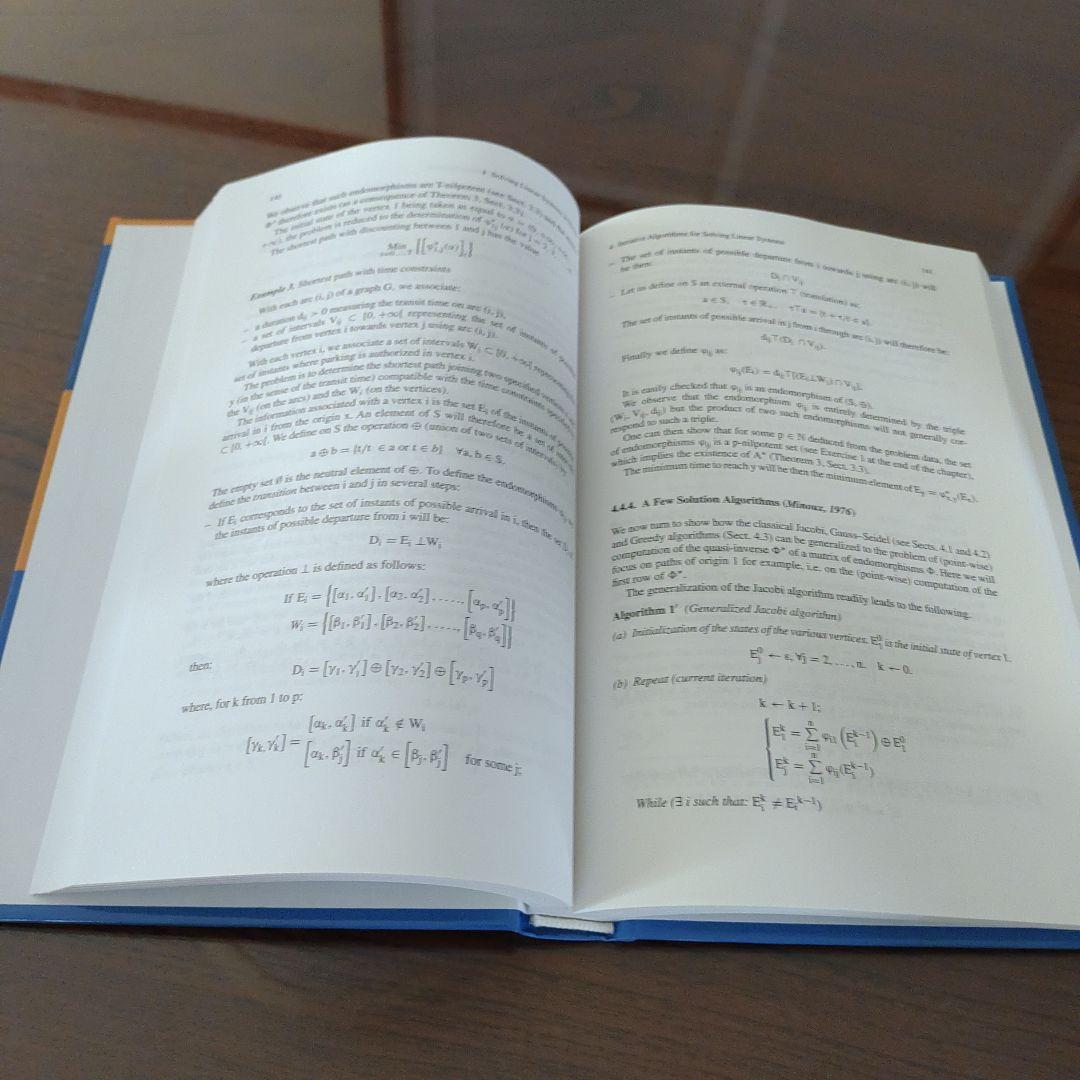 4 Solving Linear Systems
We observe that such endomorphisms are T-nilpotent (see Sect. 3.3) and the
Φ* therefore exists (as a consequence of Theorem 3, Sect. 3.3).
The initial state of the vertex 1 being taken as equal to
+∞), the problem is reduced to the determination of for j = 2,
The shortest path with discounting between 1 and j has the value
Example 3. Shortest path with time constraints
With each arc (i, j) of a graph G, we associate:
– a duration dij > 0 measuring the transit time on arc (i, j),
– a set of intervals Vij ⊂ [0, +∞[ representing the set of instants of
departure from vertex i towards vertex j using arc (i, j).
With each vertex i, we associate a set of intervals Wi ⊂ [0, +∞[
set of instants where parking is authorized in vertex i.
The problem is to determine the shortest path joining two specified
y (in the sense of the transit time) compatible with the time constraints
the Vij (on the arcs) and the Wi (on the vertices).
The information associated with a vertex i is the set Ei of the instants of
arrival in i from the origin x. An element of S will therefore be a set of
⊂ [0, +∞[. We define on S the operation ⊕ (union of two sets of intervals) by
a ⊕ b = {t/t ∈ a or t ∈ b} ∀a, b ∈ S.
The empty set ∅ is the neutral element of ⊕. To define the endomorphism
define the transition between i and j in several steps:
– If Ei corresponds to the set of instants of possible arrival in i, then the set
the instants of possible departure from i will be:
Di = Ei ⊥Wi
where the operation ⊥ is defined as follows:
If Ei = {[α1, α′1], [α2, α′2], ....., [αp, α′p]}
Wi = {[β1, β′1], [β2, β′2], ....., [βq, β′q]}
then:
Di = [γ1, γ′1] ⊕ [γ2, γ′2] ⊕ [γp, γ′p]
where, for k from 1 to p:
[αk, α′k] if α′k ∉ Wi
[γk, γ′k] =
[αk, β′j] if α′k ∈ [βj, β′j] for some j;
4 Iterative Algorithms for Solving Linear Systems
– The set of instants of possible departure from i towards j using arc (i, j) will
be then:
Di ∩ Vij
– Let us define on S an external operation ⊤ (translation) as:
The set of instants of possible arrival in j from i through arc (i, j) will therefore be:
dij⊤(Di ∩ Vij).
Finally we define φij as:
φij(Ei) = dij⊤[(Ei⊥Wi) ∩ Vij].
It is easily checked that φij is an endomorphism of (S, ⊕).
We observe that the endomorphism φij is entirely determined by the triple
(Wi, Vij, dij) but the product of two such endomorphisms will not generally cor-
respond to such a triple.
One can then show that for some p ∈ N deduced from the problem data, the set
of endomorphisms φij is a p-nilpotent set (see Exercise 1 at the end of the chapter),
which implies the existence of A* (Theorem 3, Sect. 3.3).
The minimum time to reach y will be then the minimum element of Ey = φ*x,y(Ex).
4.4.4. A Few Solution Algorithms (Minoux, 1976)
We now turn to show how the classical Jacobi, Gauss–Seidel (see Sects. 4.1 and 4.2)
and Greedy algorithms (Sect. 4.3) can be generalized to the problem of (point-wise)
computation of the quasi-inverse Φ* of a matrix of endomorphisms Φ. Here we will
focus on paths of origin 1 for example, i.e. on the (point-wise) computation of the
first row of Φ*.
The generalization of the Jacobi algorithm readily leads to the following.
Algorithm 1′ (Generalized Jacobi algorithm)
(a) Initialization of the states of the various vertices. E⁰1 is the initial state of vertex 1.
E⁰j ← ε, ∀j = 2, ..., n. k ← 0.
(b) Repeat (current iteration)
k ← k + 1;
Eᵏ1 = Σⁿi=1 φi1 (Eᵏ⁻¹i) ⊕ E⁰1
Eᵏj = Σⁿi=1 φij(Eᵏ⁻¹i)
While (∃ i such that: Eᵏi ≠ Eiᵏ⁻¹)